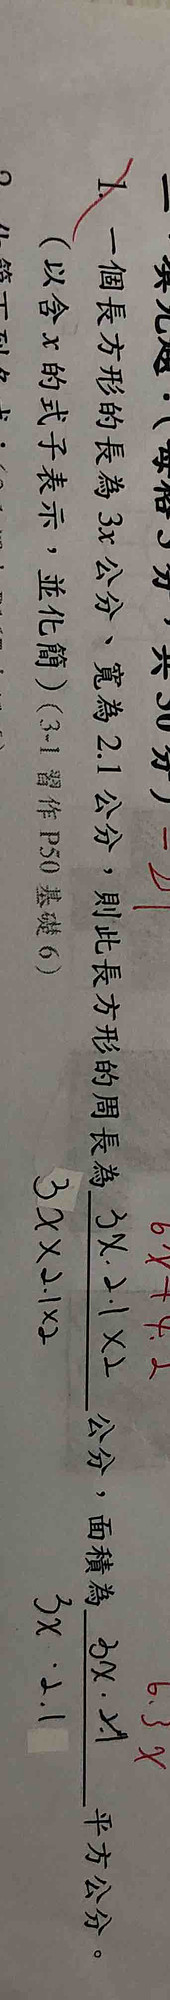 一、填充題：(每格3分，共30分) -21
6x+4.2 6.3x
1. 一個長方形的長為3x公分、寬為2.1公分，則此長方形的周長為 3x·2.1×2 公分，面積為 3x·2.1 平方公分。
(以含x的式子表示，並化簡)(3-1習作P50基礎6) 3x×2.1×2 3x·2.1